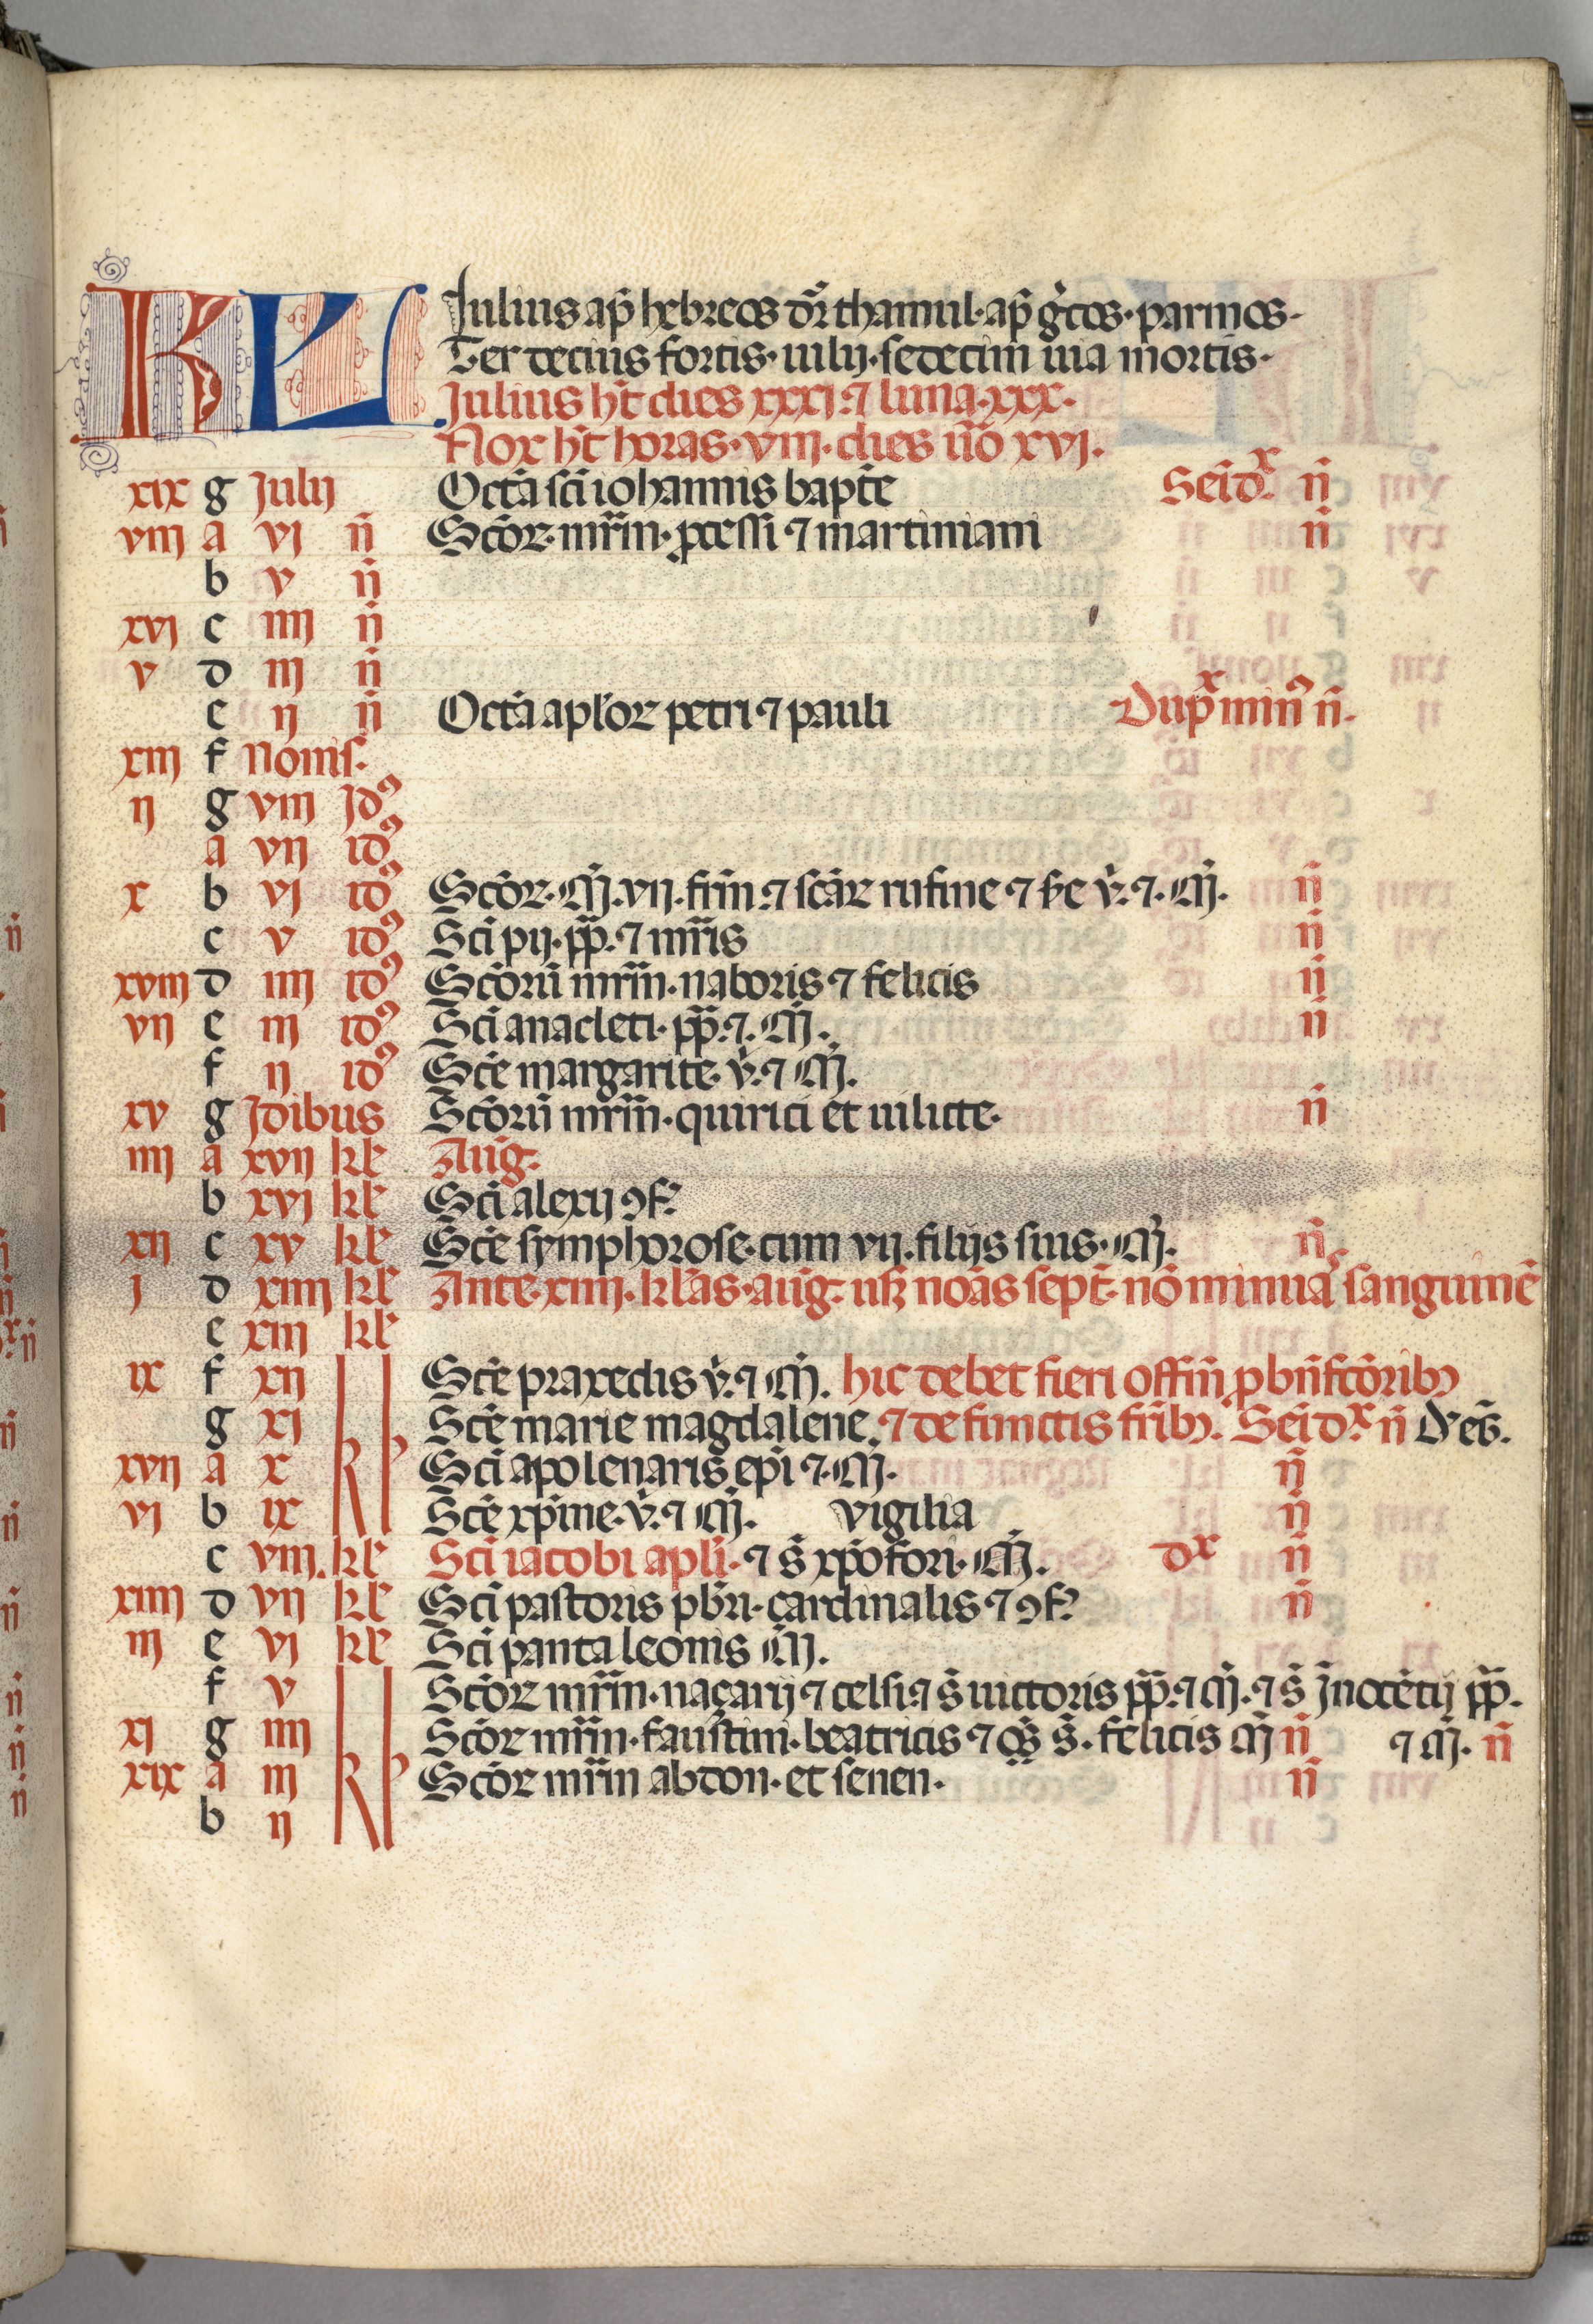 KL Iulius ap̄ hebreos dr̄ thamul· ap̄ g̊cos· parmos·
Ter decius fortis· iulij· sedecim uia mortis·
Julius ht̄ dies xxxj· ⁊ luna· xxx·
Nox ht̄ horas· viij· dies ūo xvj·
xix g Julij Octā sci iohannis bapt̄e Sēid^x n̄
viij a vj n̄ Scōr· mr̄m· ꝓcessi ⁊ martiniani n̄
b v n̄
xvj c iiij n̄
v d iij n̄
e ij n̄ Octā aplōr petri ⁊ pauli Dup^x minꝰ n̄·
xiij f Nonis·
ij g viij Jdꝰ
a vij idꝰ
x b vj idꝰ Scōr· M̄· vij· frm̄· ⁊ scār rufine ⁊ sc̄e v̄· ⁊· M̄· n̄
c v idꝰ Sci pij· pp̄· ⁊ mr̄is n̄
xviij d iiij idꝰ Scōrū mr̄m· naboris ⁊ felicis n̄
vij e iij idꝰ Sci anacleti· pp̄· ⁊· M̄· n̄
f ij idꝰ Scē margarite· v̄· ⁊ M̄·
xv g Jdibus Scōrū mr̄m· quirici et iulicte· n̄
iiij a xvij kl̄ Auḡ·
b xvj kl̄ Sci alexij ꝯf̄
xij c xv kl̄ Scē symphorose· cum vij· filijs suis· M̄· n̄
j d xiiij kl̄ Ante· xiiij· kl̄as· auḡ· usꝫ noās sept̄· nō minuas sanguinē
e xiij kl̄
ix f xij kl̄ Scē praxedis v̄· ⁊ M̄· hic debet fieri offm̄ ꝓ bn̄fcōribꝫ
g xj Scē marie magdalene· ⁊ defunctis frībꝫ· Sēid^x· n̄
xvij a x Sci apolenaris ep̄i ⁊· M̄· n̄
vj b ix Scē xp̄ine· v̄· ⁊ M̄· vigilia n̄
c viij· kl̄ Sci iacobi apl̄i· ⁊ s̄ xp̄ofori· M̄· d^x n̄
xiiij d vij kl̄ Sci pastoris pb̄ri· cardinalis ⁊ ꝯf̄ n̄
iij e vj kl̄ Sci pantaleonis M̄·
f v kl̄ Scōr mr̄m· naçarij ⁊ celsi· ⁊ s̄ uictoris pp̄· ⁊ M̄· ⁊ s̄ Jnocētij pp̄·
xj g iiij Scōr mr̄m· faustini· beatricis ⁊ s̄· felicis M̄ n̄ ⁊ M̄· n̄
xix a iij Scōr mr̄m abdon· et senen· n̄
b ij